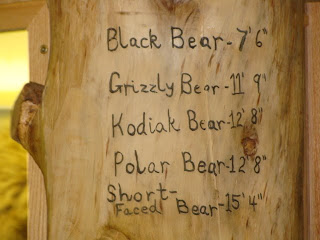 Black Bear-7'6"
Grizzly Bear-11' 9"
Kodiak Bear-12' 8"
Polar Bear-12'8"
Short-
Faced Bear-15'4"